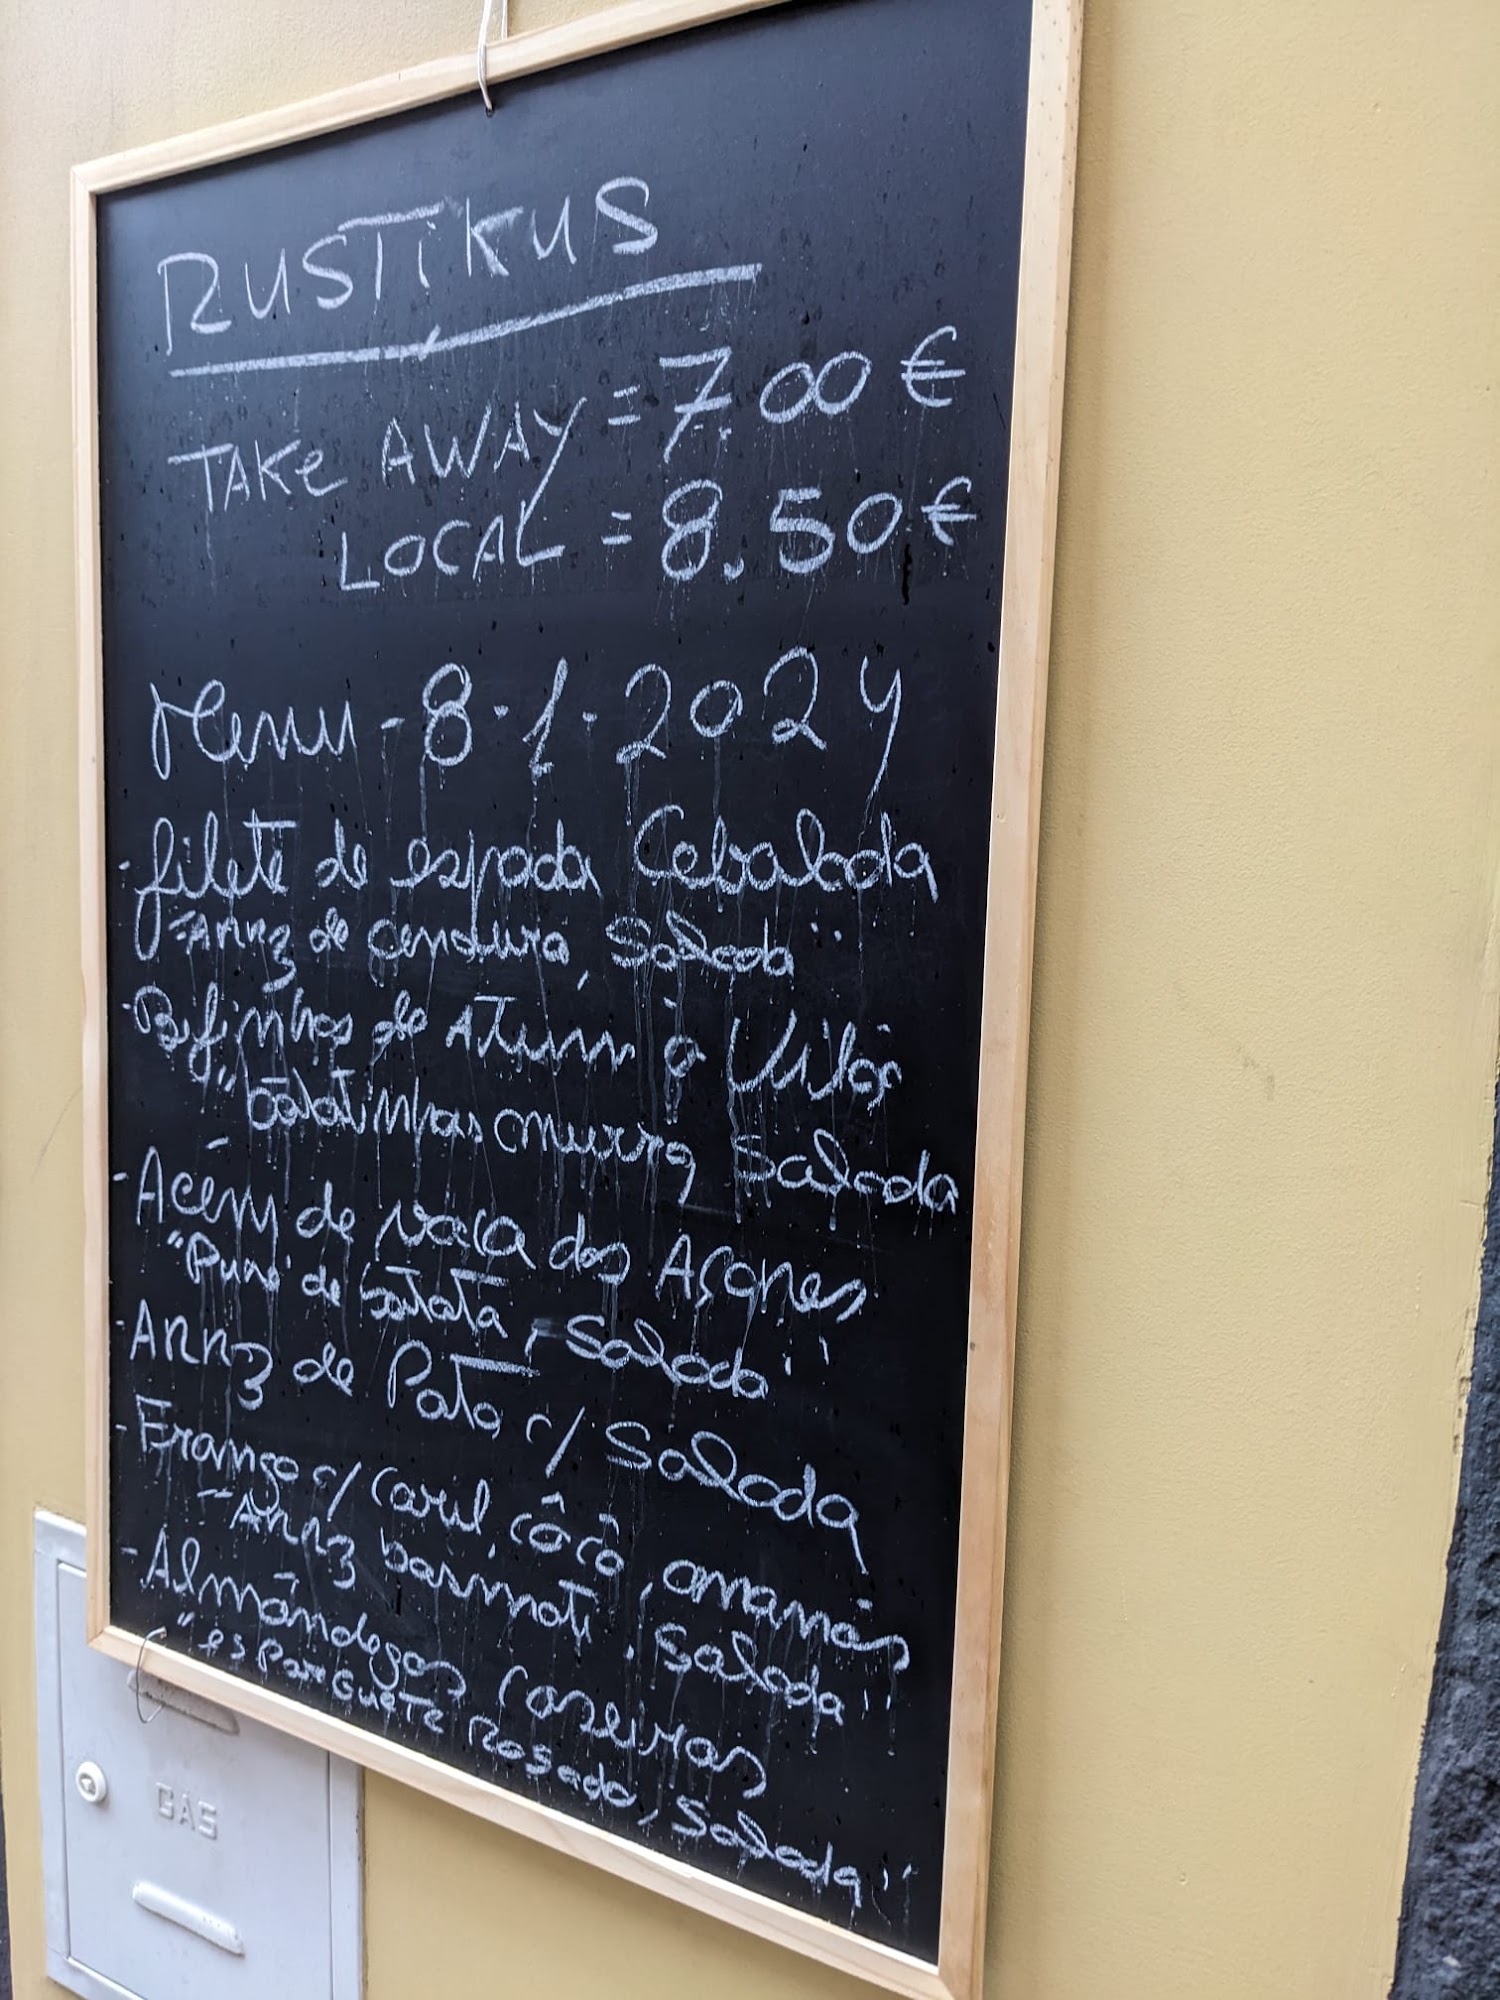 RUSTiKUS
TAKe AWAY = 7.00 €
LOCAL = 8.50 €
Menu - 8.1.2024
- filete de espada Cebolada
"Arroz de cenoura, Salada"
- Bifinhos de Atum à Vilão
"batatinhas murro, Salada
- Acém de vaca dos Açores
"Puré de batata, Salada"
- Arroz de Pato c/ Salada
- Frango c/ Caril, côcô, ananás
"Arroz basmati, Salada"
- Almôndegas Caseiras
"esparguete Rosado, Salada"
GAS